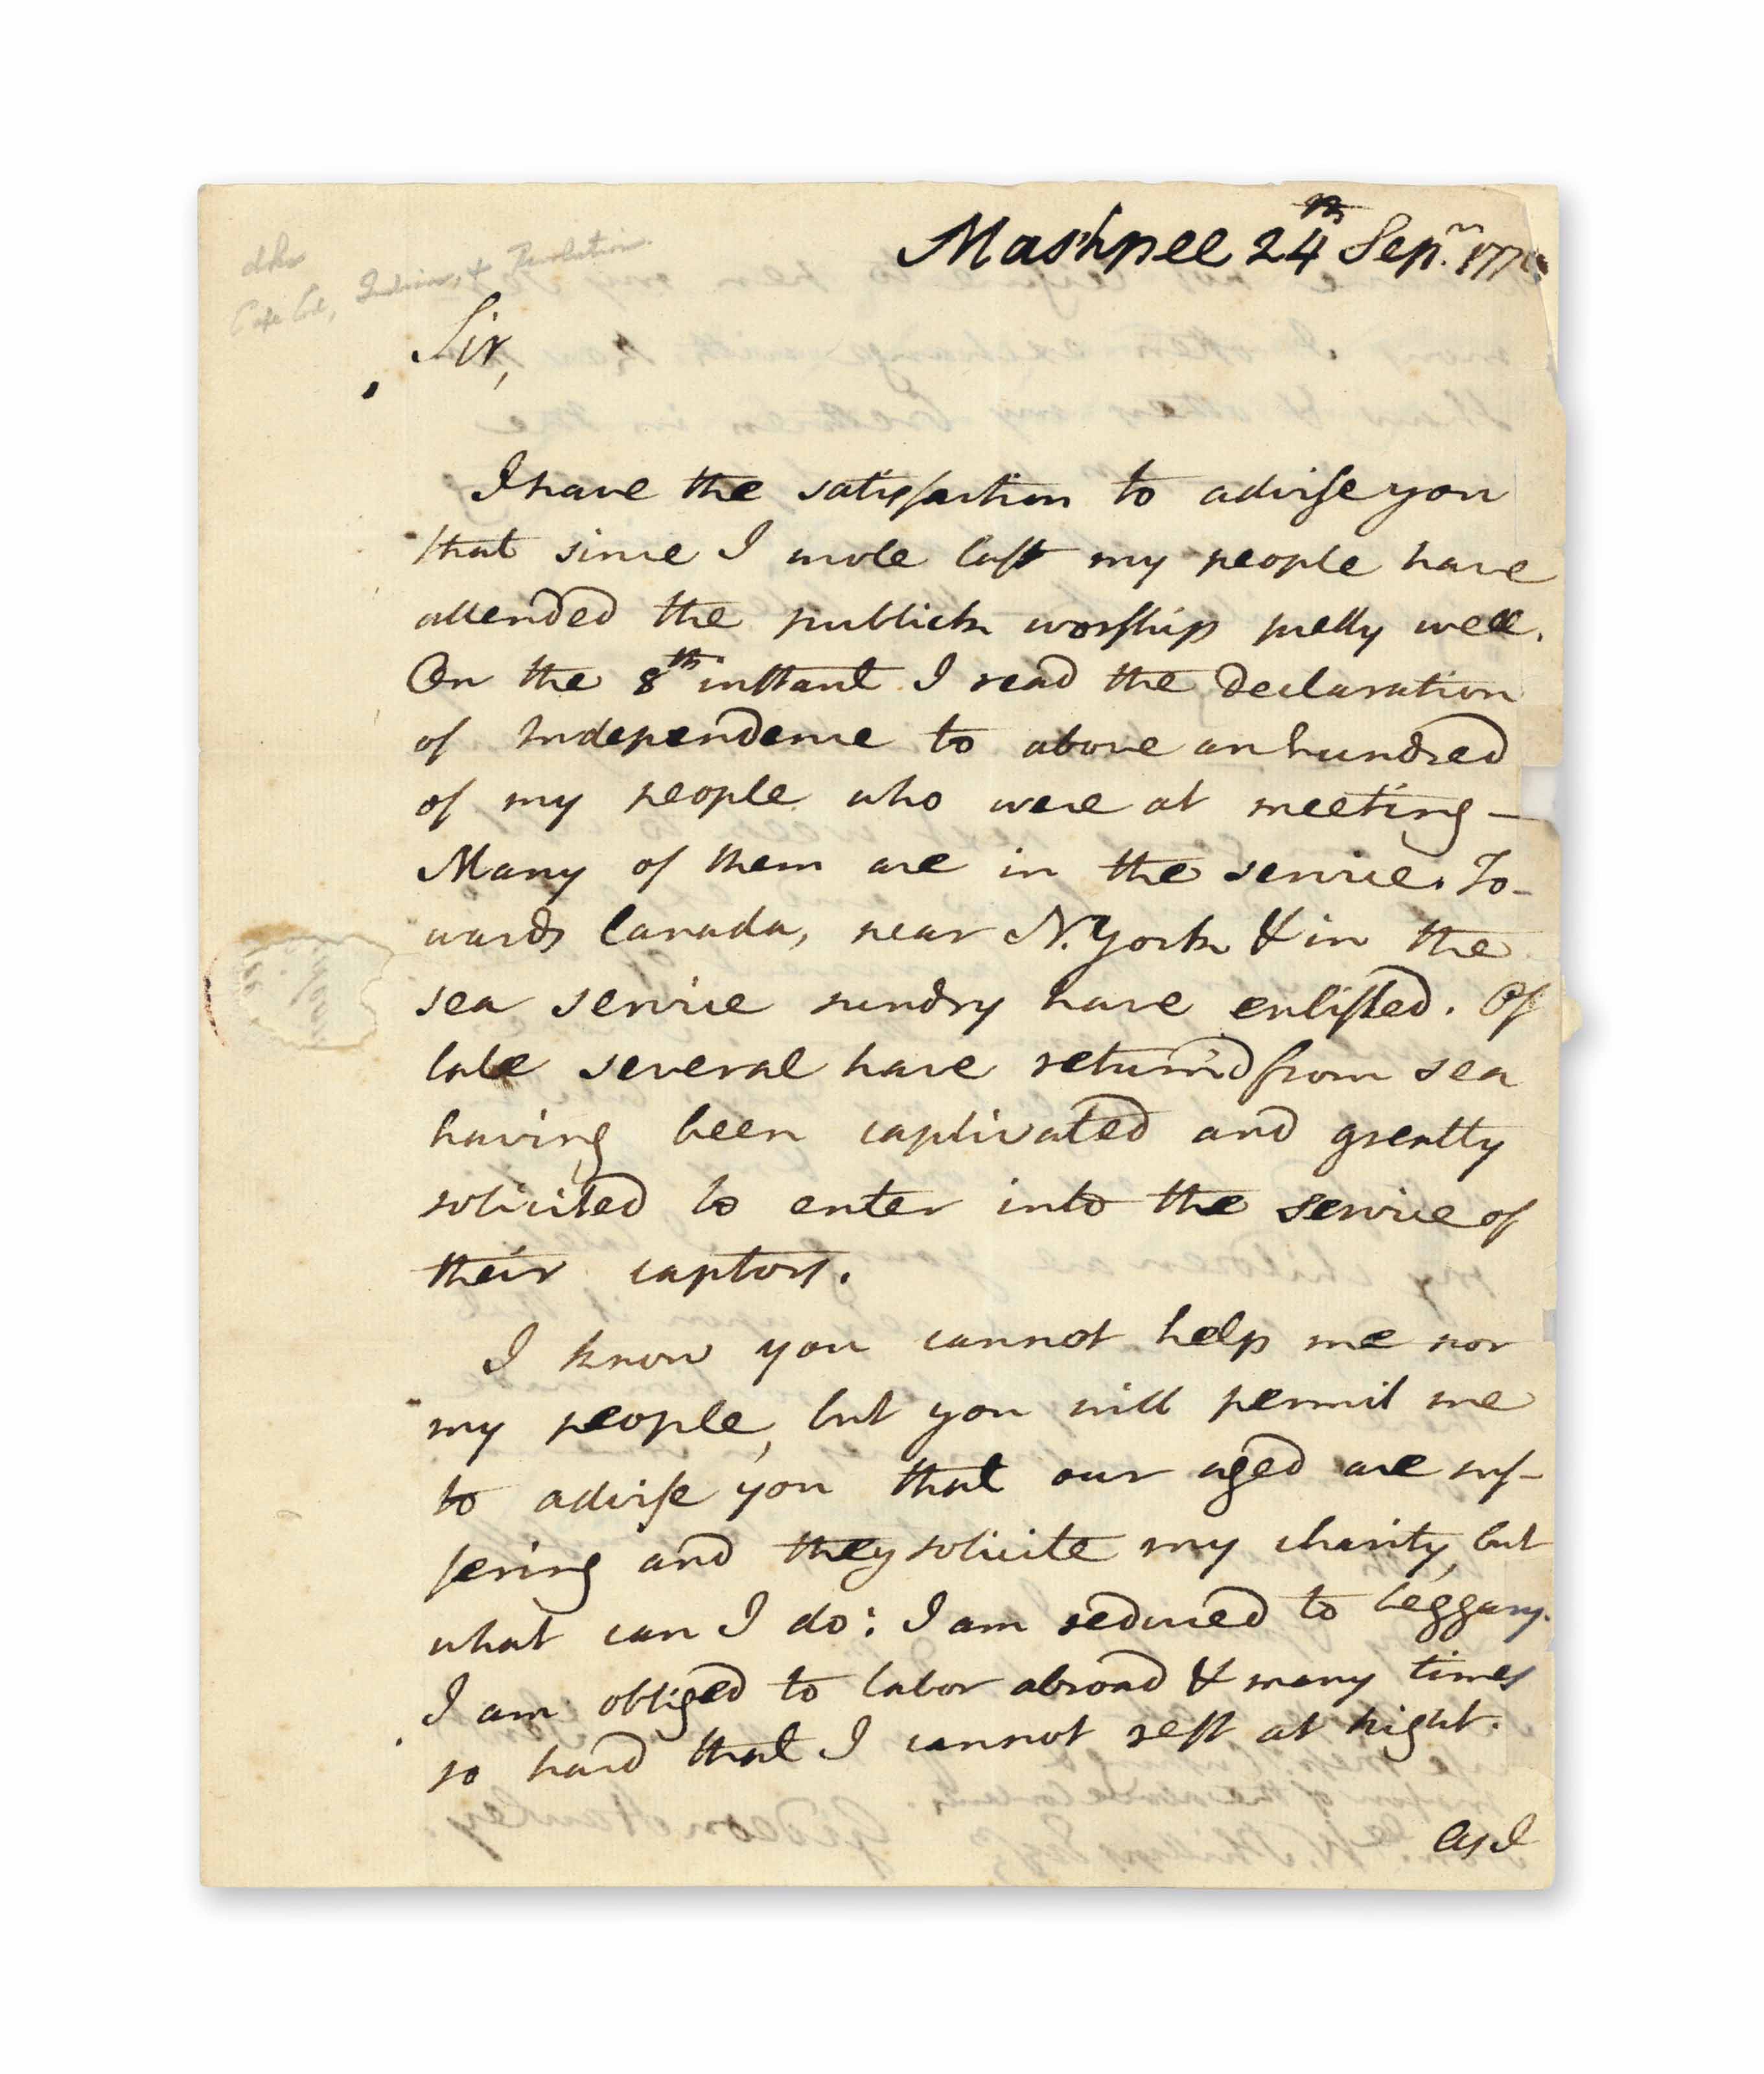 Cape Cod, Indians, & Revolution.
Mashpee 24th Sepr. 1776
Sir,
I have the satisfaction to advise you
that since I wrote last my people have
attended the publick worship pretty well.
On the 8th instant I read the declaration
of Independence to above an hundred
of my people who were at meeting —
Many of them are in the service. To-
wards Canada, near N. York & in the
sea service sundry have enlisted. Of
late several have return'd from sea
having been captivated and greatly
solicited to enter into the service of
their captors.
I know you cannot help me nor
my people, but you will permit me
to advise you that our aged are suf-
fering and they solicite my charity, but
what can I do: I am reduced to beggary.
I am obliged to labor abroad & many times
so hard that I cannot rest at night.
As I